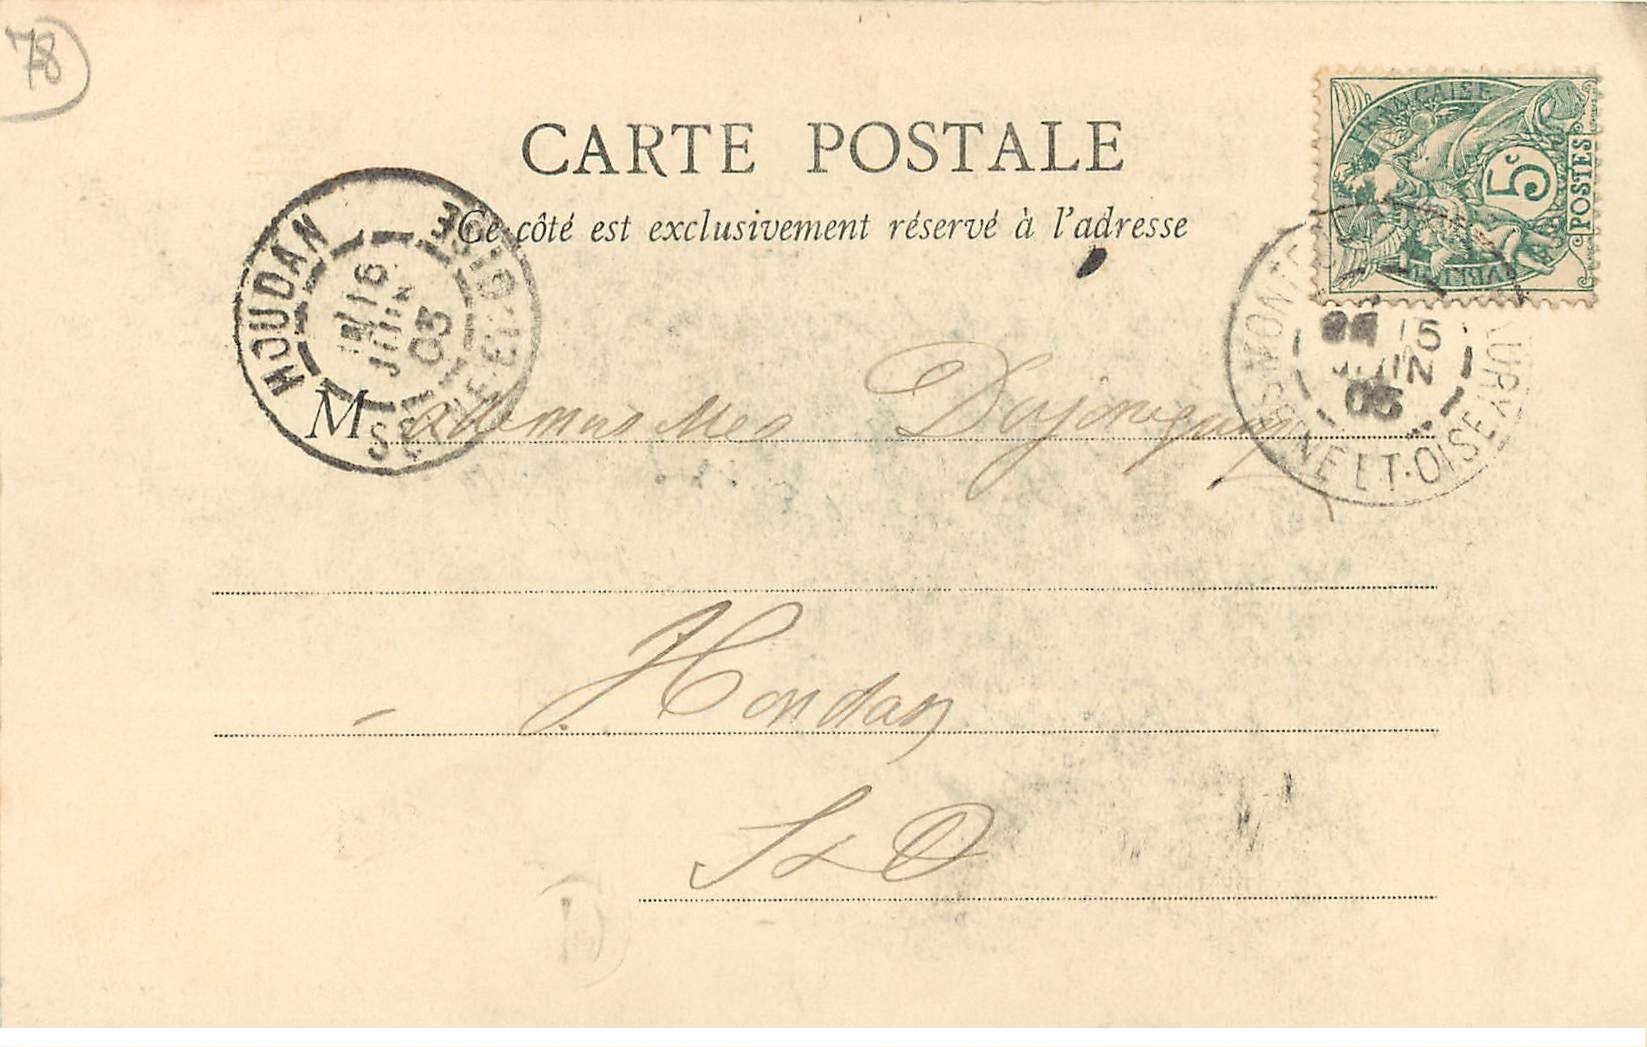 78
CARTE POSTALE
Ce côté est exclusivement réservé à à l'adresse
FRANÇAISE
5c
POSTES
HOUDAN
16
JUIN
03
SEINE-ET-OISE
MONTF
15
JUIN
03
NE ET-OISE
M
Houdan
S & O